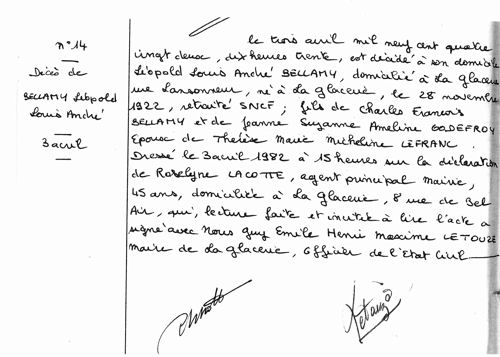 n° 14
Décès de
BELLAMY Léopold
Louis André
3 avril
Le trois avril mil neuf cent quatre
vingt deux, dix heures trente, est décédé à son domicile
Léopold Louis André BELLAMY, domicilié à La Glacerie
rue Lansonneur, né à La Glacerie, le 28 novembre
1922, retraité SNCF ; fils de Charles François
BELLAMY et de Jeanne Suzanne Ameline GODEFROY
Epoux de Thérèse Marie Micheline LEFRANC.
Dressé le 3 avril 1982 à 15 heures sur la déclaration
de Roselyne LACOTTE, agent principal mairie,
45 ans, domiciliée à La Glacerie, 8 rue de Bel
Air, qui, lecture faite et invitée à lire l'acte a
signé avec Nous Guy Emile Henri Maxime LETOUZE
Maire de La Glacerie, Officier de l'Etat Civil